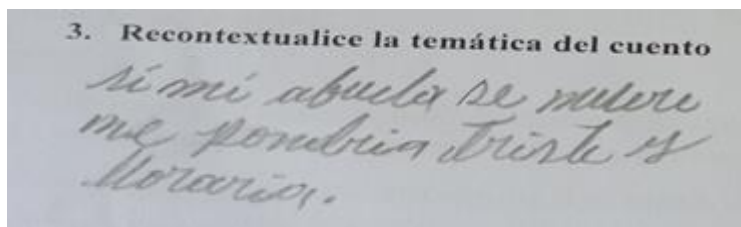 3. Recontextualice la temática del cuento
si mi abuela se muere
me pondria triste y
lloraria.